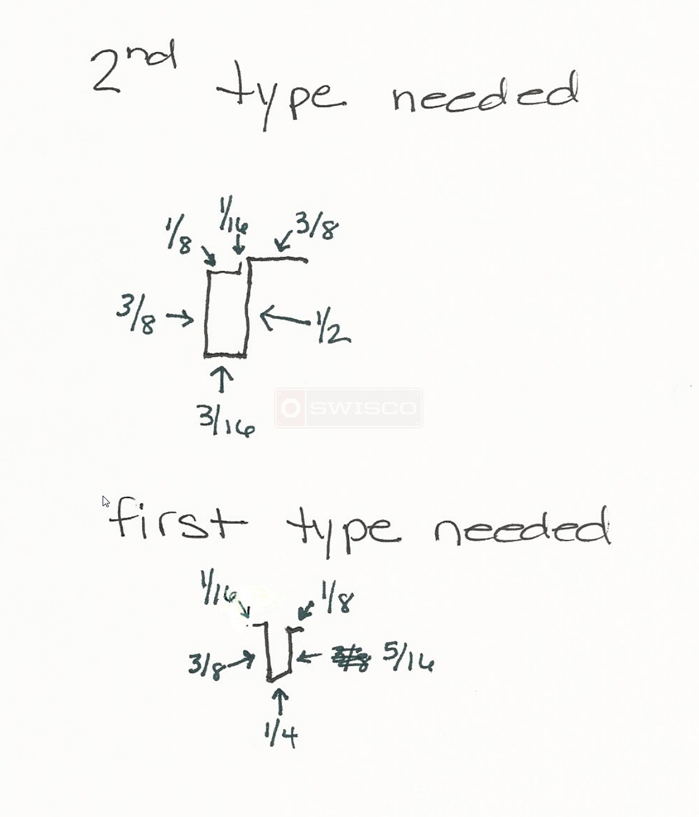 2nd type needed
1/8 1/16 3/8
3/8 1/2
3/16
SWISCO
first type needed
1/16 1/8
3/8 5/16
1/4